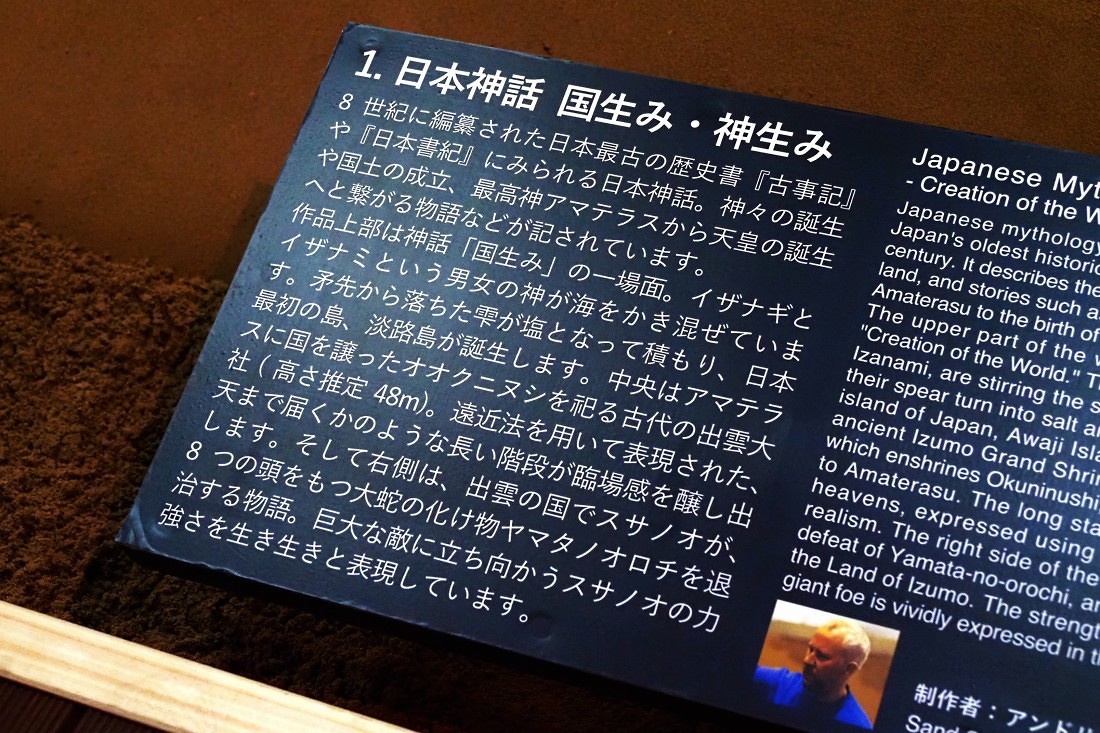 1. 日本神話 国生み・神生み
8 世紀に編纂された日本最古の歴史書『古事記』
や『日本書紀』にみられる日本神話。神々の誕生
や国土の成立、最高神アマテラスから天皇の誕生
へと繋がる物語などが記されています。
作品上部は神話「国生み」の一場面。イザナギと
イザナミという男女の神が海をかき混ぜていま
す。矛先から落ちた雫が塩となって積もり、日本
最初の島、淡路島が誕生します。中央はアマテラ
スに国を譲ったオオクニヌシを祀る古代の出雲大
社 ( 高さ推定 48m)。遠近法を用いて表現された、
天まで届くかのような長い階段が臨場感を醸し出
します。そして右側は、出雲の国でスサノオが、
8 つの頭をもつ大蛇の化け物ヤマタノオロチを退
治する物語。巨大な敵に立ち向かうスサノオの力
強さを生き生きと表現しています。
Japanese Myt
- Creation of the W
Japanese mythology
Japan's oldest historic
century. It describes the
land, and stories such a
Amaterasu to the birth of
The upper part of the w
"Creation of the World." T
Izanami, are stirring the s
their spear turn into salt a
island of Japan, Awaji Isla
ancient Izumo Grand Shrin
which enshrines Okuninushi
to Amaterasu. The long sta
heavens, expressed using
realism. The right side of the
defeat of Yamata-no-orochi, a
the Land of Izumo. The strengt
giant foe is vividly expressed in t
制作者：アンドリ
Sand